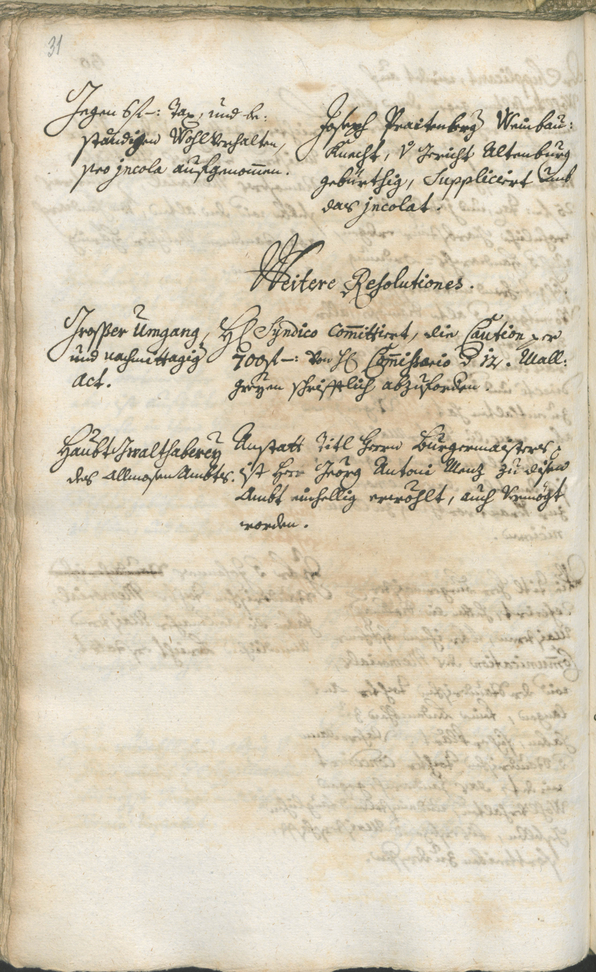 31
Gegen 6 fl–: Tax, und be:
ständigen Wohlverhalten,
pro jncola aufgenommen.
Joseph Praitenberg Weinbau:
Knecht, Gericht Altenburg
gebürthig, Suppliciert umb
das jncolat.
Weitere Resolutiones.
Grosser Umgang,
und nachmittägig
Act.
H: Syndico committiert, die Caution per
700 fl–: von H: Commissario Wall:
schrifftlich abzufordern
Haubt Gwalthaberey
des Allmosen Ambtes.
Anstatt Titl Herrn Burgermaisters,
ist Herr Georg Antoni Menz zu disem
Ambt einhellig erwöhlt, auch
worden.